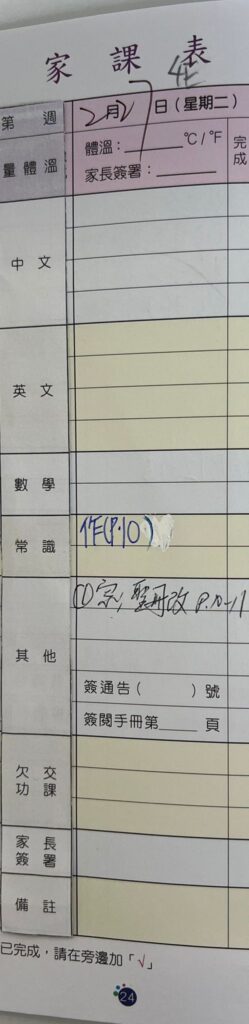 家課表
第 週 2月27日(星期二)
量體溫 體溫：______°C/°F 完成
家長簽署：______
中文
英文
數學
常識 作(P.10)
其他
P.10-11
簽通告( )號
簽閱手冊第____頁
欠交功課
家長簽署
備註
已完成，請在旁邊加「√」
24